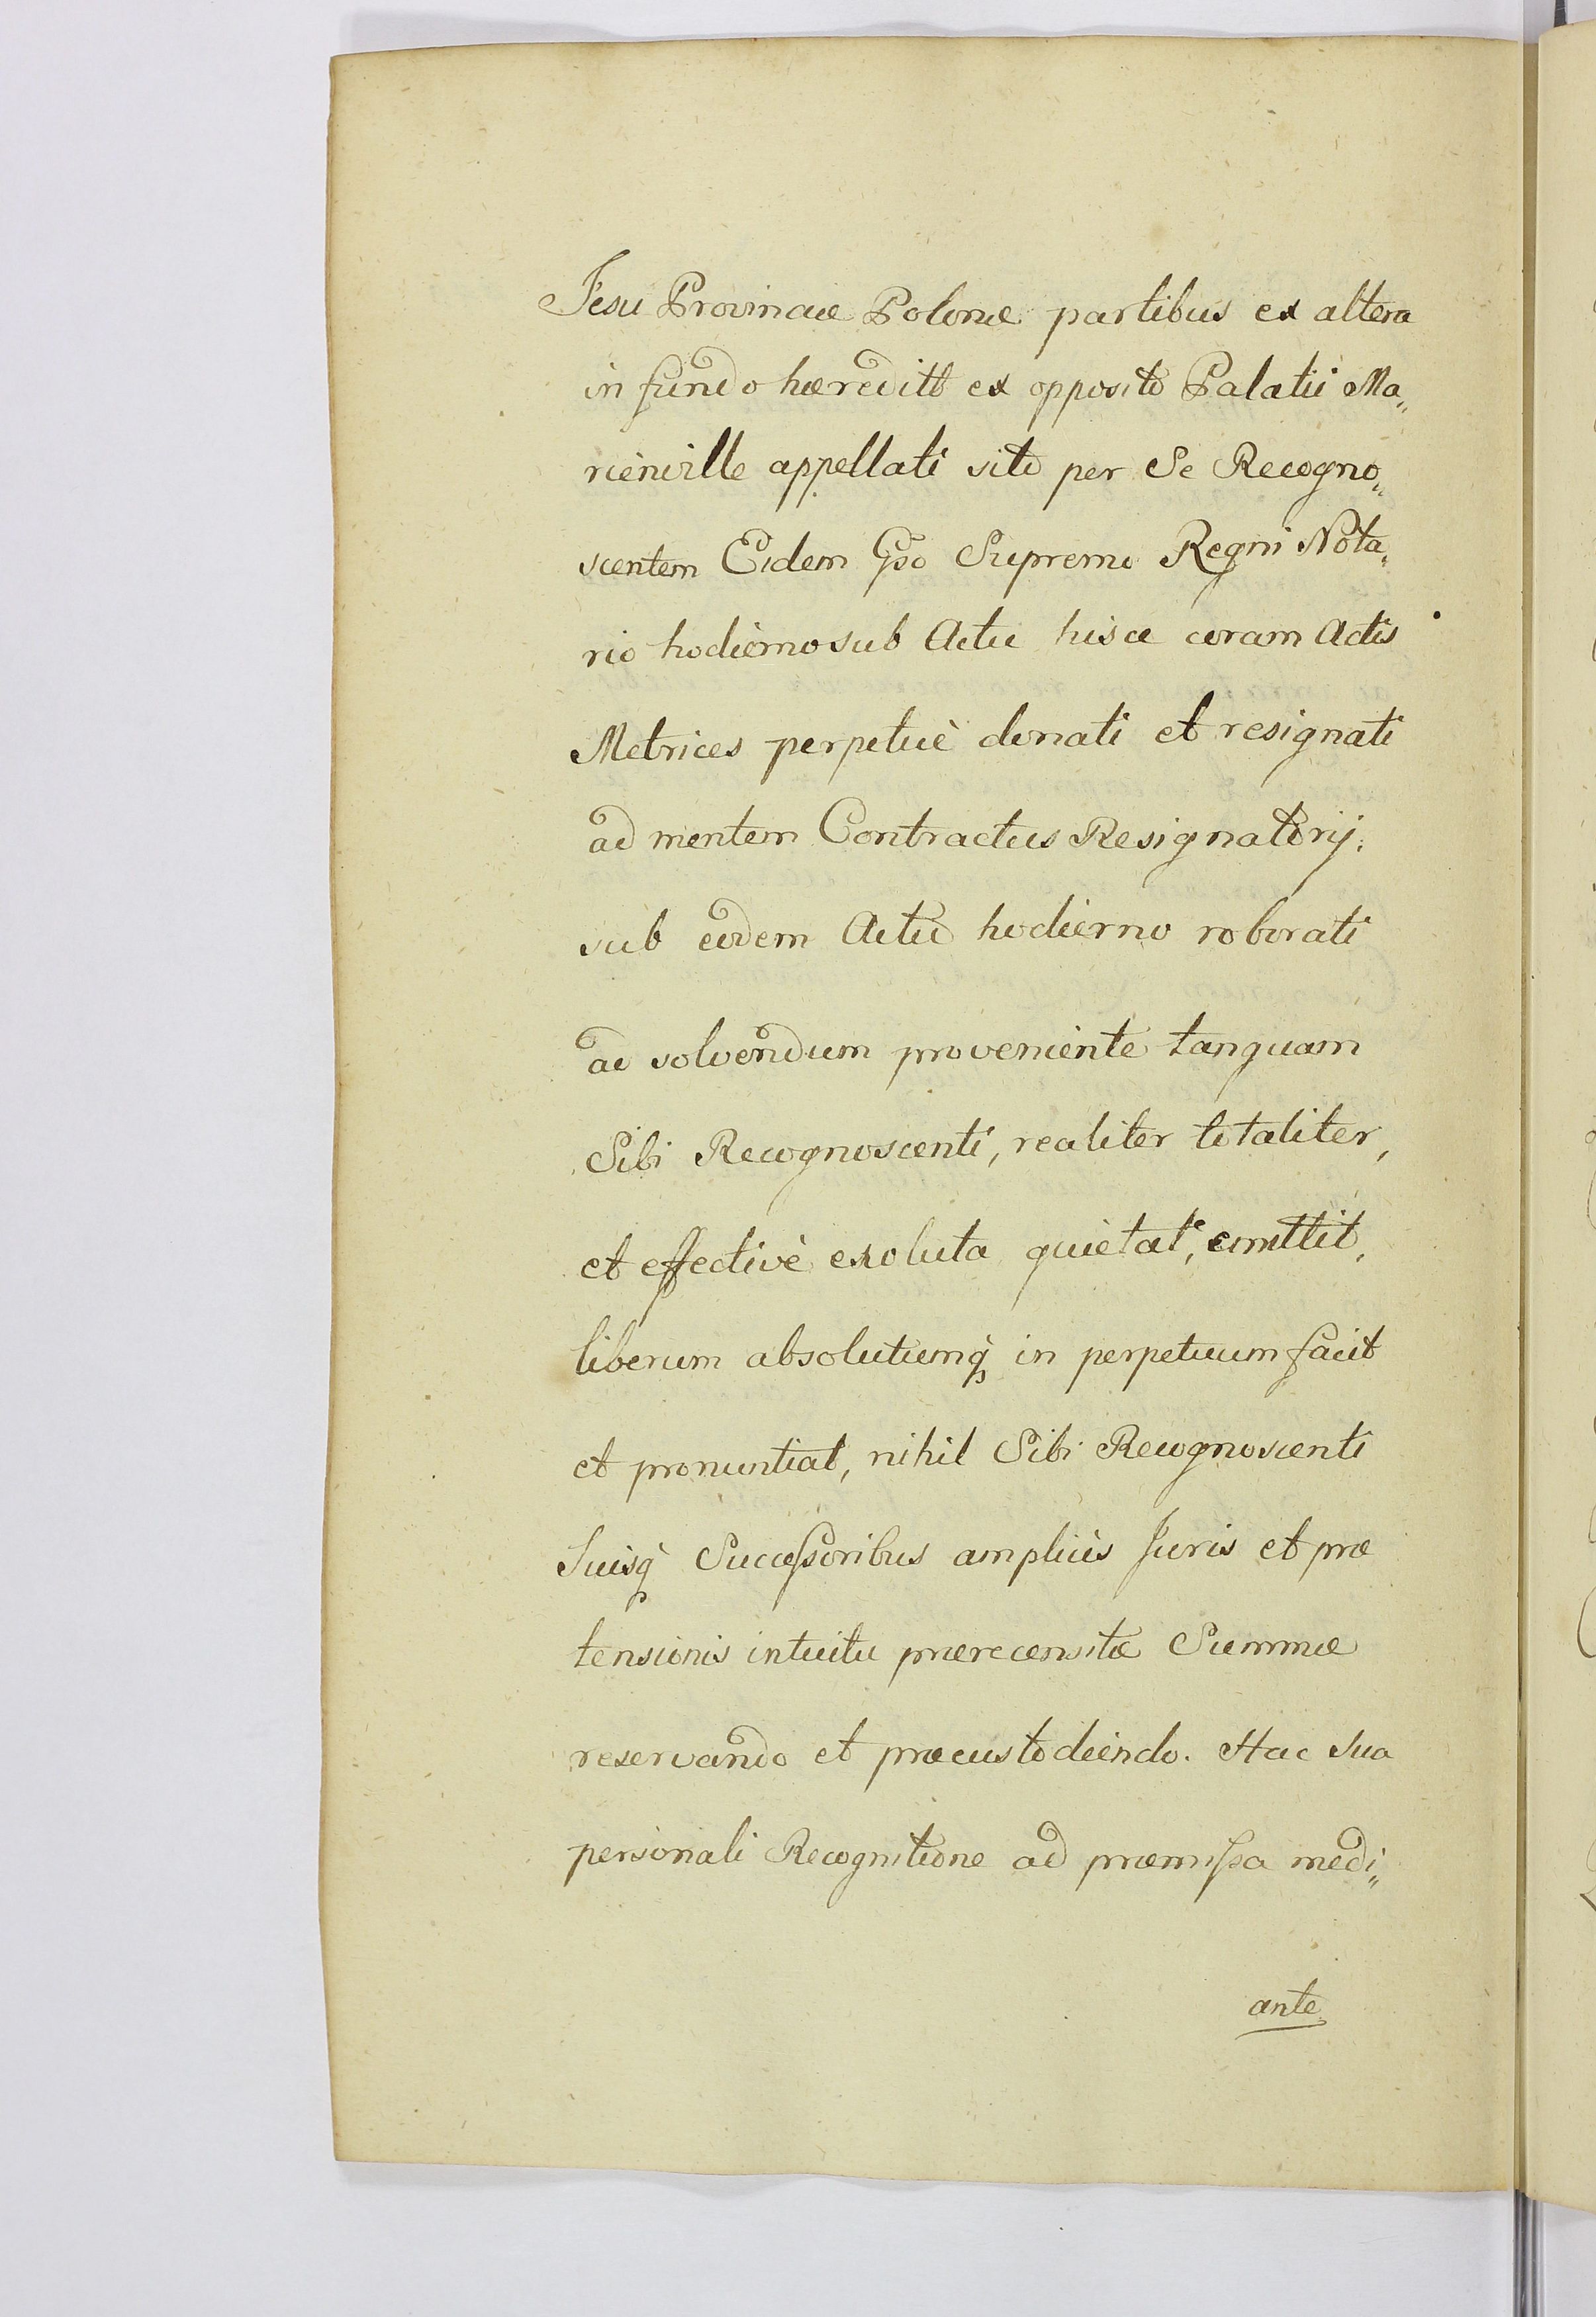 Jesu Provinciæ Polonæ partibus ex altera
in fundo hæreditt ex opposito Palatii Ma„
rienville appellati sito per Se Recogno„
scentem Eidem Gso Supremo Regni Nota„
rio hodierno sub Actu hisce coram Actis
Metrices perpetuè donati et resignati
ad mentem Contractus Resignatorij
sub eodem Actu hodierno roborati
ad solvendum proveniente tanquam
Sibi Recognoscenti, realiter totaliter,
et effectivè exoluta quietat, emittit,
liberum absolutumq̀ in perpetuum facit
et pronuntiat, nihil Sibi Recognoscenti
Suisq̀ Successoribus ampliùs Juris et præ
tensionis intuitu prærecensitæ Summæ
reservando et præcustodiendo. Hac Sua
personali Recognitione ad præmissa medi„
ante